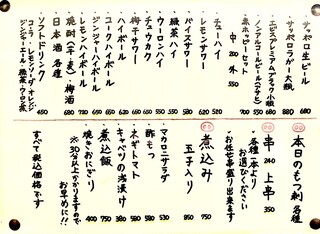 サッポロ生ビール 680
サッポロラガー 大瓶 880
エビスプレミアムブラック小瓶 680
ノンアルコールビール
赤ホッピーセット 550
中 外
チューハイ 520
レモンサワー 620
バイスサワー 580
緑茶ハイ 550
ウーロンハイ 550
梅干サワー
ハイボール
コークハイボール
ジンジャーハイボール
レモンハイボール
焼酎(芋・麦)・梅酒
日本酒 各種 680
ソフトドリンク 450
コーラ レモンソーダ オレンジ
ジンジャーエール・緑茶・ウーロン茶
本日のもつ刺 各種
串 240 上串 350
各種一本より
お選びください
お任せ串盛り出来ます
煮込み 750
玉子入り 850
マカロニサラダ 530
酢もつ 580
ネギトマト 580
キャベツの浅漬け 380
煮込飯 750
焼きおにぎり 400
※30分以上かかりますので
お早めに!!
すべて税込価格です